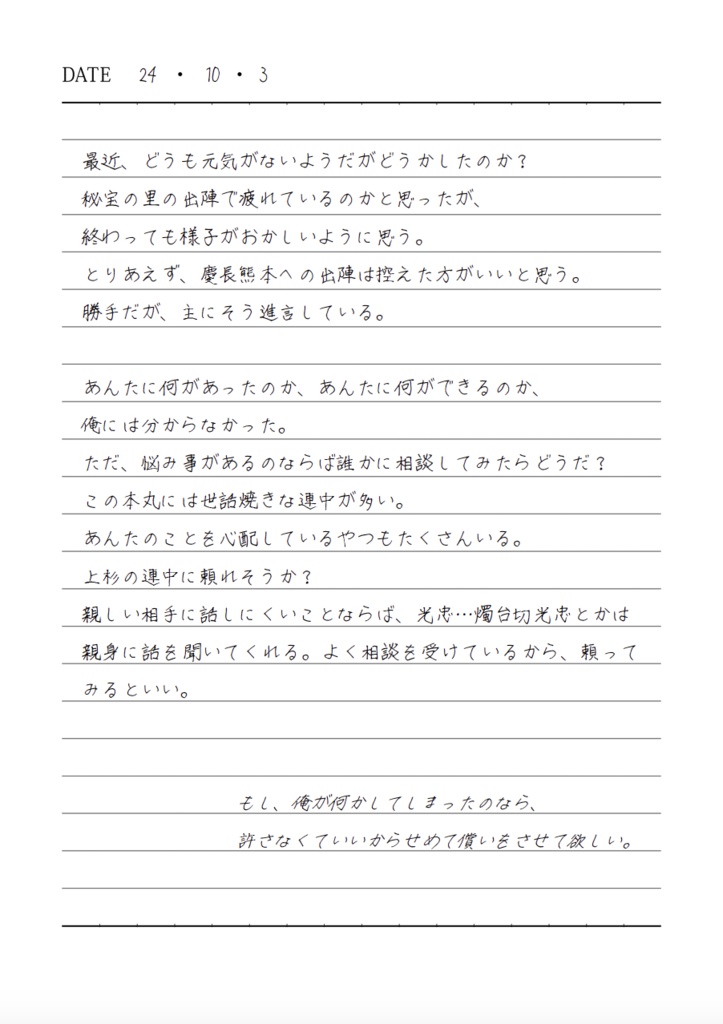 DATE 24 ・ 10 ・ 3
最近、どうも元気がないようだがどうかしたのか？
秘宝の里の出陣で疲れているのかと思ったが、
終わっても様子がおかしいように思う。
とりあえず、慶長熊本への出陣は控えた方がいいと思う。
勝手だが、主にそう進言している。
あんたに何があったのか、あんたに何ができるのか、
俺には分からなかった。
ただ、悩み事があるのならば誰かに相談してみたらどうだ？
この本丸には世話焼きな連中が多い。
あんたのことを心配しているやつもたくさんいる。
上杉の連中に頼れそうか？
親しい相手に話しにくいことならば、光忠…燭台切光忠とかは
親身に話を聞いてくれる。よく相談を受けているから、頼って
みるといい。
もし、俺が何かしてしまったのなら、
許さなくていいからせめて償いをさせて欲しい。